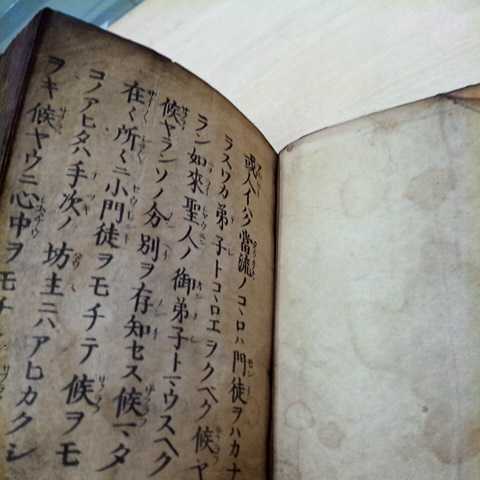 或人イハク當流ノコヽロハ門徒ヲハカナ
ラスワカ弟子トコヽロエヲクヘク候ヤ
ラン如來聖人ノ御弟子トマウスヘク
候ヤランソノ分別ヲ存知セス候マタ
在々所々ニ小門徒ヲモチテ候ヲモ
コノアヒタハ手次ノ坊主ニハアヒカクシ
ヲキ候ヤウニ心中ヲモチ